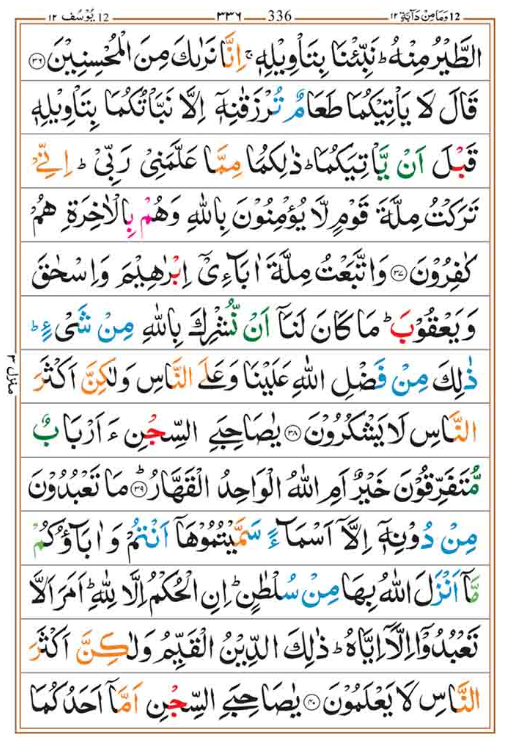 12 وَمَا مِنْ دَآبَّةٍ ١٢ 336 ٣٣٦ 12 يُوْسُف ١٢
الطَّيْرُ مِنْهُ ؕ نَبِّئْنَا بِتَاْوِيْلِهٖ ۚ اِنَّا نَرٰىكَ مِنَ الْمُحْسِنِيْنَ ﴿۳۶﴾
قَالَ لَا يَاْتِيْكُمَا طَعَامٌ تُرْزَقٰنِهٖۤ اِلَّا نَبَّاْتُكُمَا بِتَاْوِيْلِهٖ
قَبْلَ اَنْ يَّاْتِيَكُمَا ؕ ذٰلِكُمَا مِمَّا عَلَّمَنِيْ رَبِّيْ ؕ اِنِّيْ
تَرَكْتُ مِلَّةَ قَوْمٍ لَّا يُؤْمِنُوْنَ بِاللّٰهِ وَهُمْ بِالْاٰخِرَةِ هُمْ
كٰفِرُوْنَ ﴿۳۷﴾ وَاتَّبَعْتُ مِلَّةَ اٰبَآءِيْۤ اِبْرٰهِيْمَ وَاِسْحٰقَ
وَيَعْقُوْبَ ؕ مَا كَانَ لَنَاۤ اَنْ نُّشْرِكَ بِاللّٰهِ مِنْ شَيْءٍ ؕ
ذٰلِكَ مِنْ فَضْلِ اللّٰهِ عَلَيْنَا وَعَلَى النَّاسِ وَلٰكِنَّ اَكْثَرَ
النَّاسِ لَا يَشْكُرُوْنَ ﴿۳۸﴾ يٰصَاحِبَيِ السِّجْنِ ءَاَرْبَابٌ
مُّتَفَرِّقُوْنَ خَيْرٌ اَمِ اللّٰهُ الْوَاحِدُ الْقَهَّارُ ﴿۳۹﴾ؕ مَا تَعْبُدُوْنَ
مِنْ دُوْنِهٖۤ اِلَّاۤ اَسْمَآءً سَمَّيْتُمُوْهَاۤ اَنْتُمْ وَاٰبَآؤُكُمْ
مَّاۤ اَنْزَلَ اللّٰهُ بِهَا مِنْ سُلْطٰنٍ ؕ اِنِ الْحُكْمُ اِلَّا لِلّٰهِ ؕ اَمَرَ اَلَّا
تَعْبُدُوْۤا اِلَّاۤ اِيَّاهُ ؕ ذٰلِكَ الدِّيْنُ الْقَيِّمُ وَلٰكِنَّ اَكْثَرَ
النَّاسِ لَا يَعْلَمُوْنَ ﴿۴۰﴾ يٰصَاحِبَيِ السِّجْنِ اَمَّاۤ اَحَدُكُمَا
منزل ۳